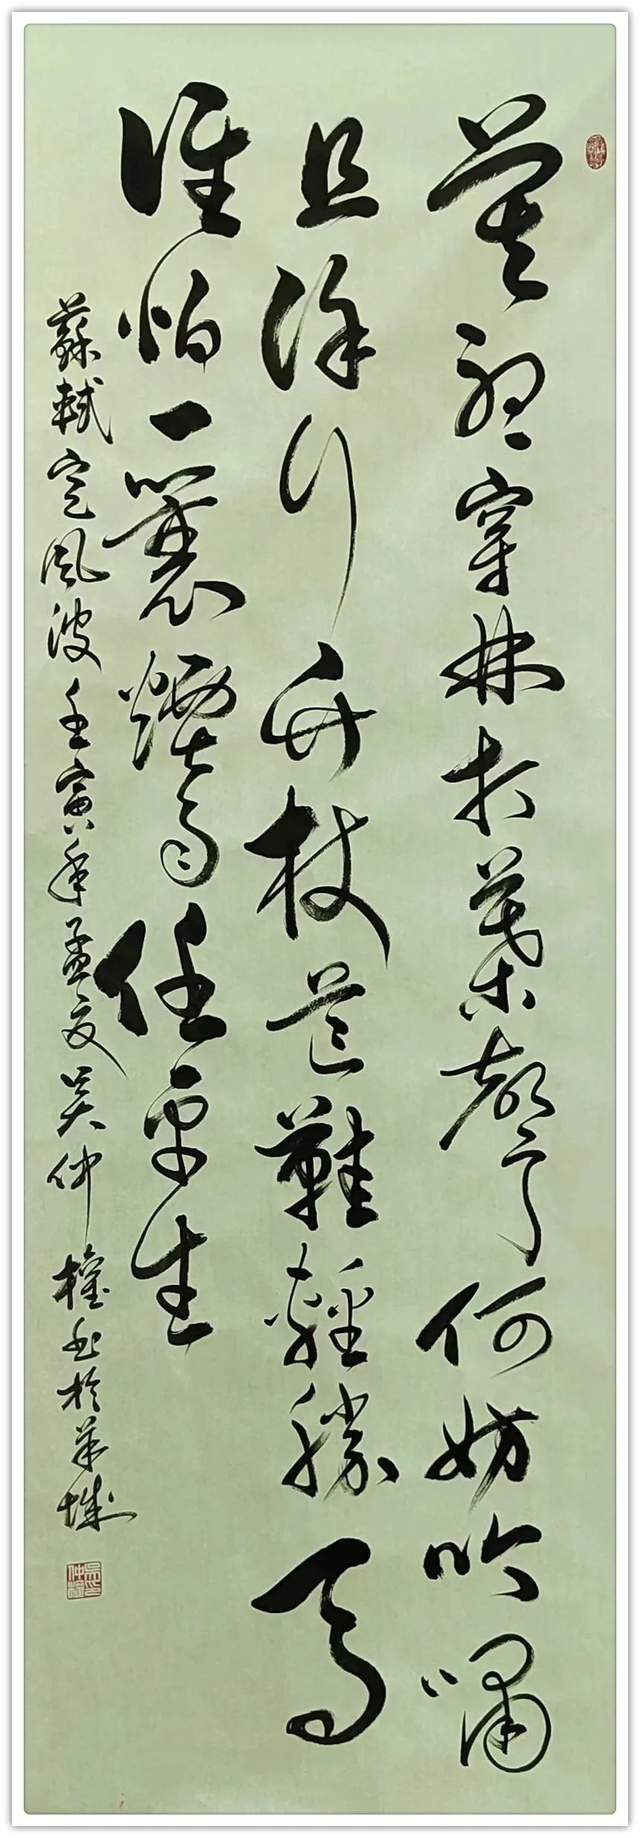 莫聽穿林打葉聲何妨吟嘯
且徐行竹杖芒鞋輕勝馬
誰怕一蓑煙雨任平生
蘇軾定風波壬寅年孟夏吴仲權書於羊城